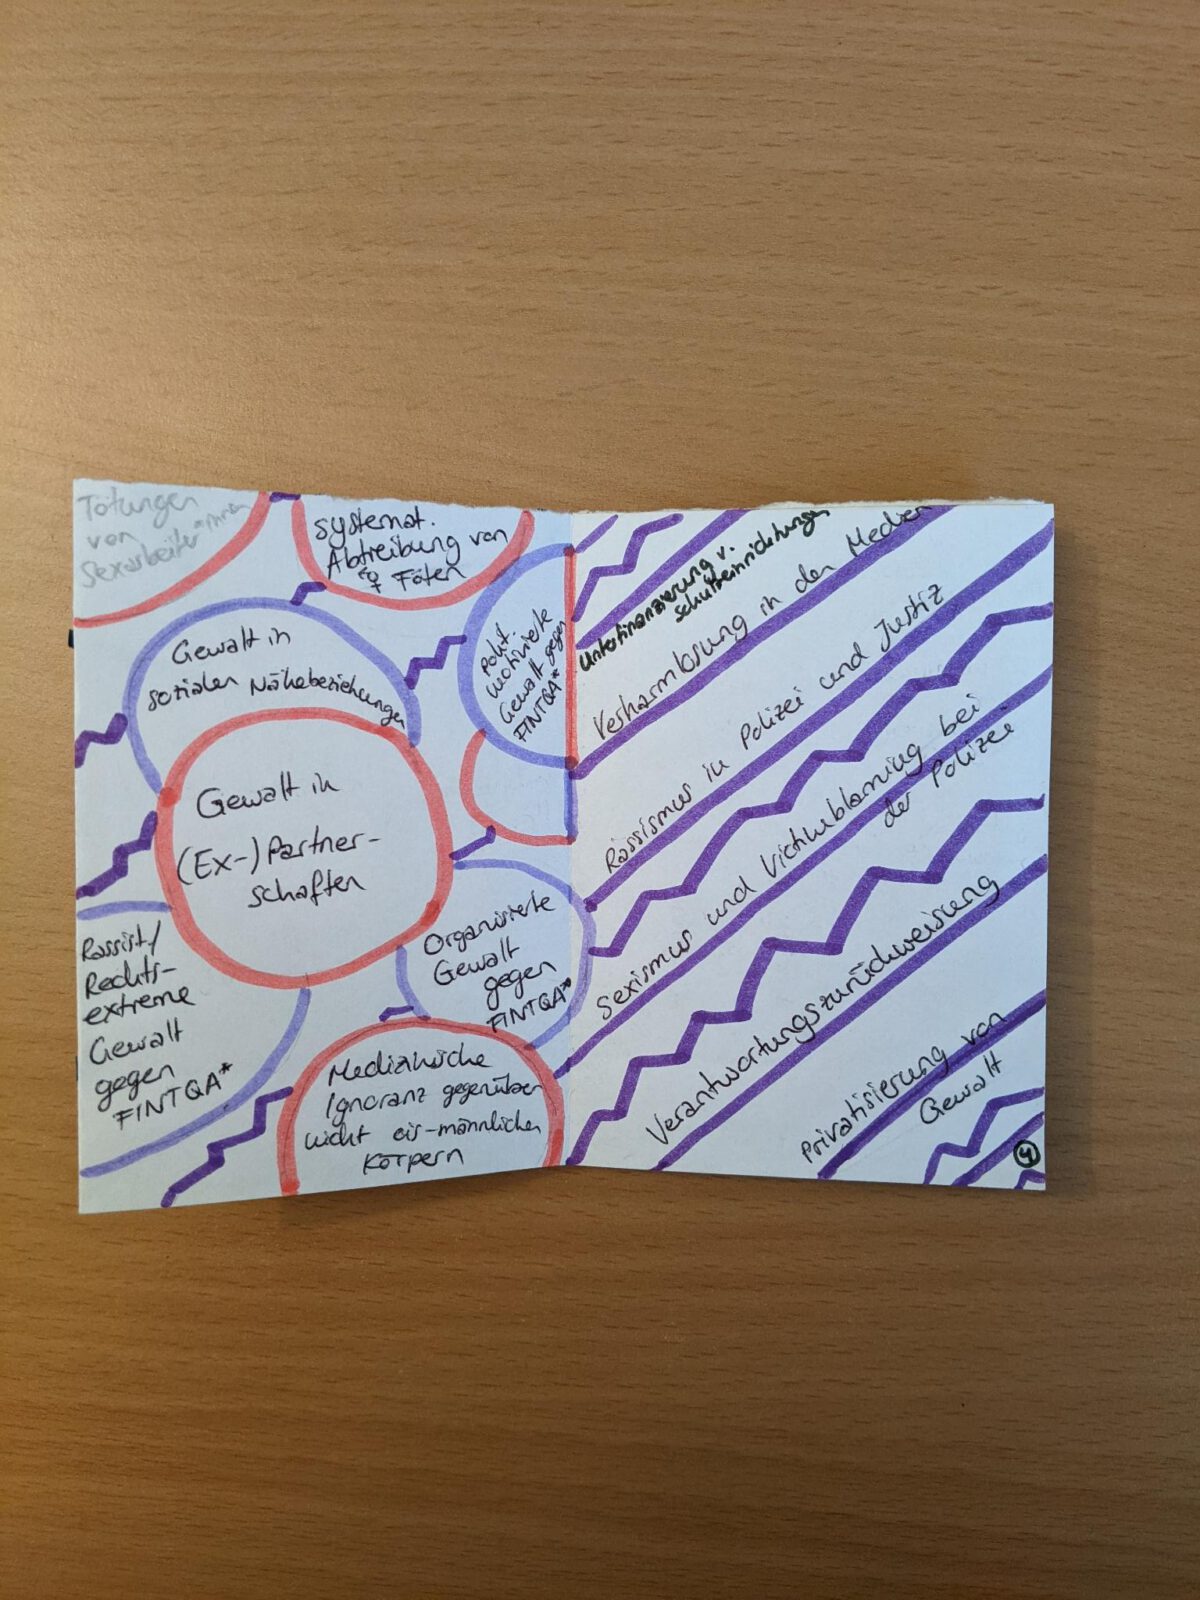 Tötungen
von
Sexarbeiter*innen
systemat.
Abtreibung von
♀ Föten
Gewalt in
sozialen Nähebeziehungen
polit.
motivierte
Gewalt gegen
FINTQA*
Gewalt in
(Ex-) Partner-
schaften
Rassist/
Rechts-
extreme
Gewalt
gegen
FINTQA*
Organisierte
Gewalt
gegen
FINTQA*
Medizinische
Ignoranz gegenüber
nicht cis-männlichen
Körpern
Unterfinanzierung v.
Schutzeinrichtungen
Verharmlosung in den Medien
Rassismus in Polizei und Justiz
Sexismus und Victimblaming bei
der Polizei
Verantwortungszurückweisung
Privatisierung von
Gewalt
4